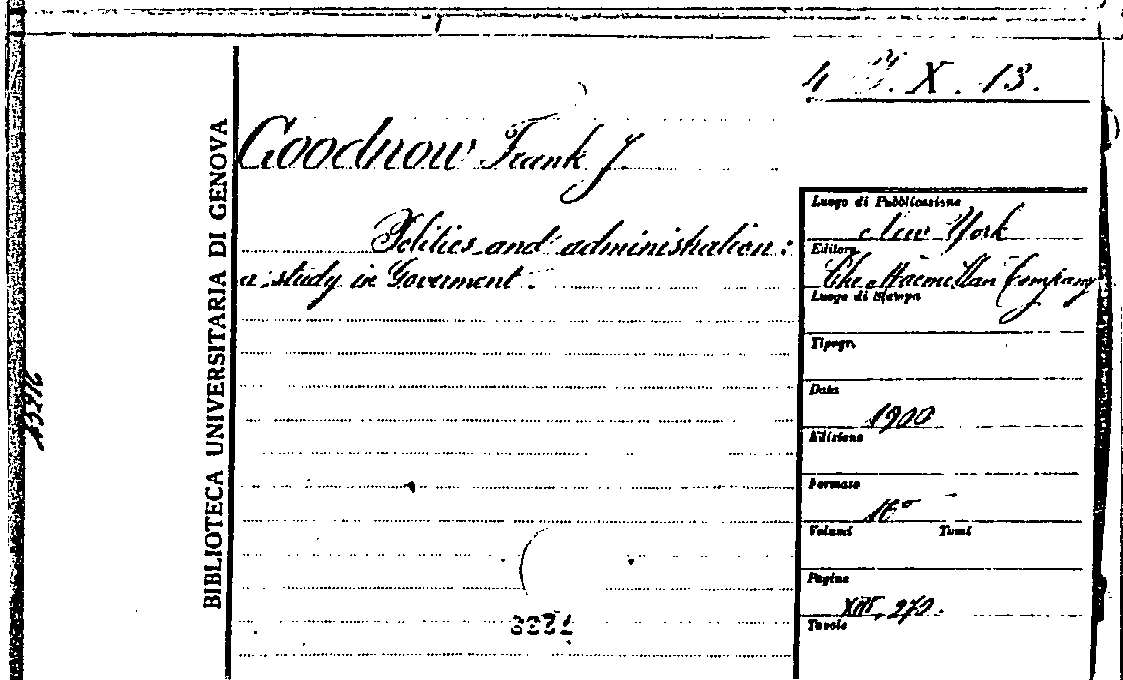 4 J. X. 13.
Goodnow Frank J.
Politics and administration:
a study in Goverment.
BIBLIOTECA UNIVERSITARIA DI GENOVA
Luogo di Pubblicazione
New York
Editore
The Macmillan Company
Luogo di Stampa
Tipogr.
Data
1900
Edizione
Formato
16°
Volumi Tomi
Pagine
XIII, 270.
Tavole